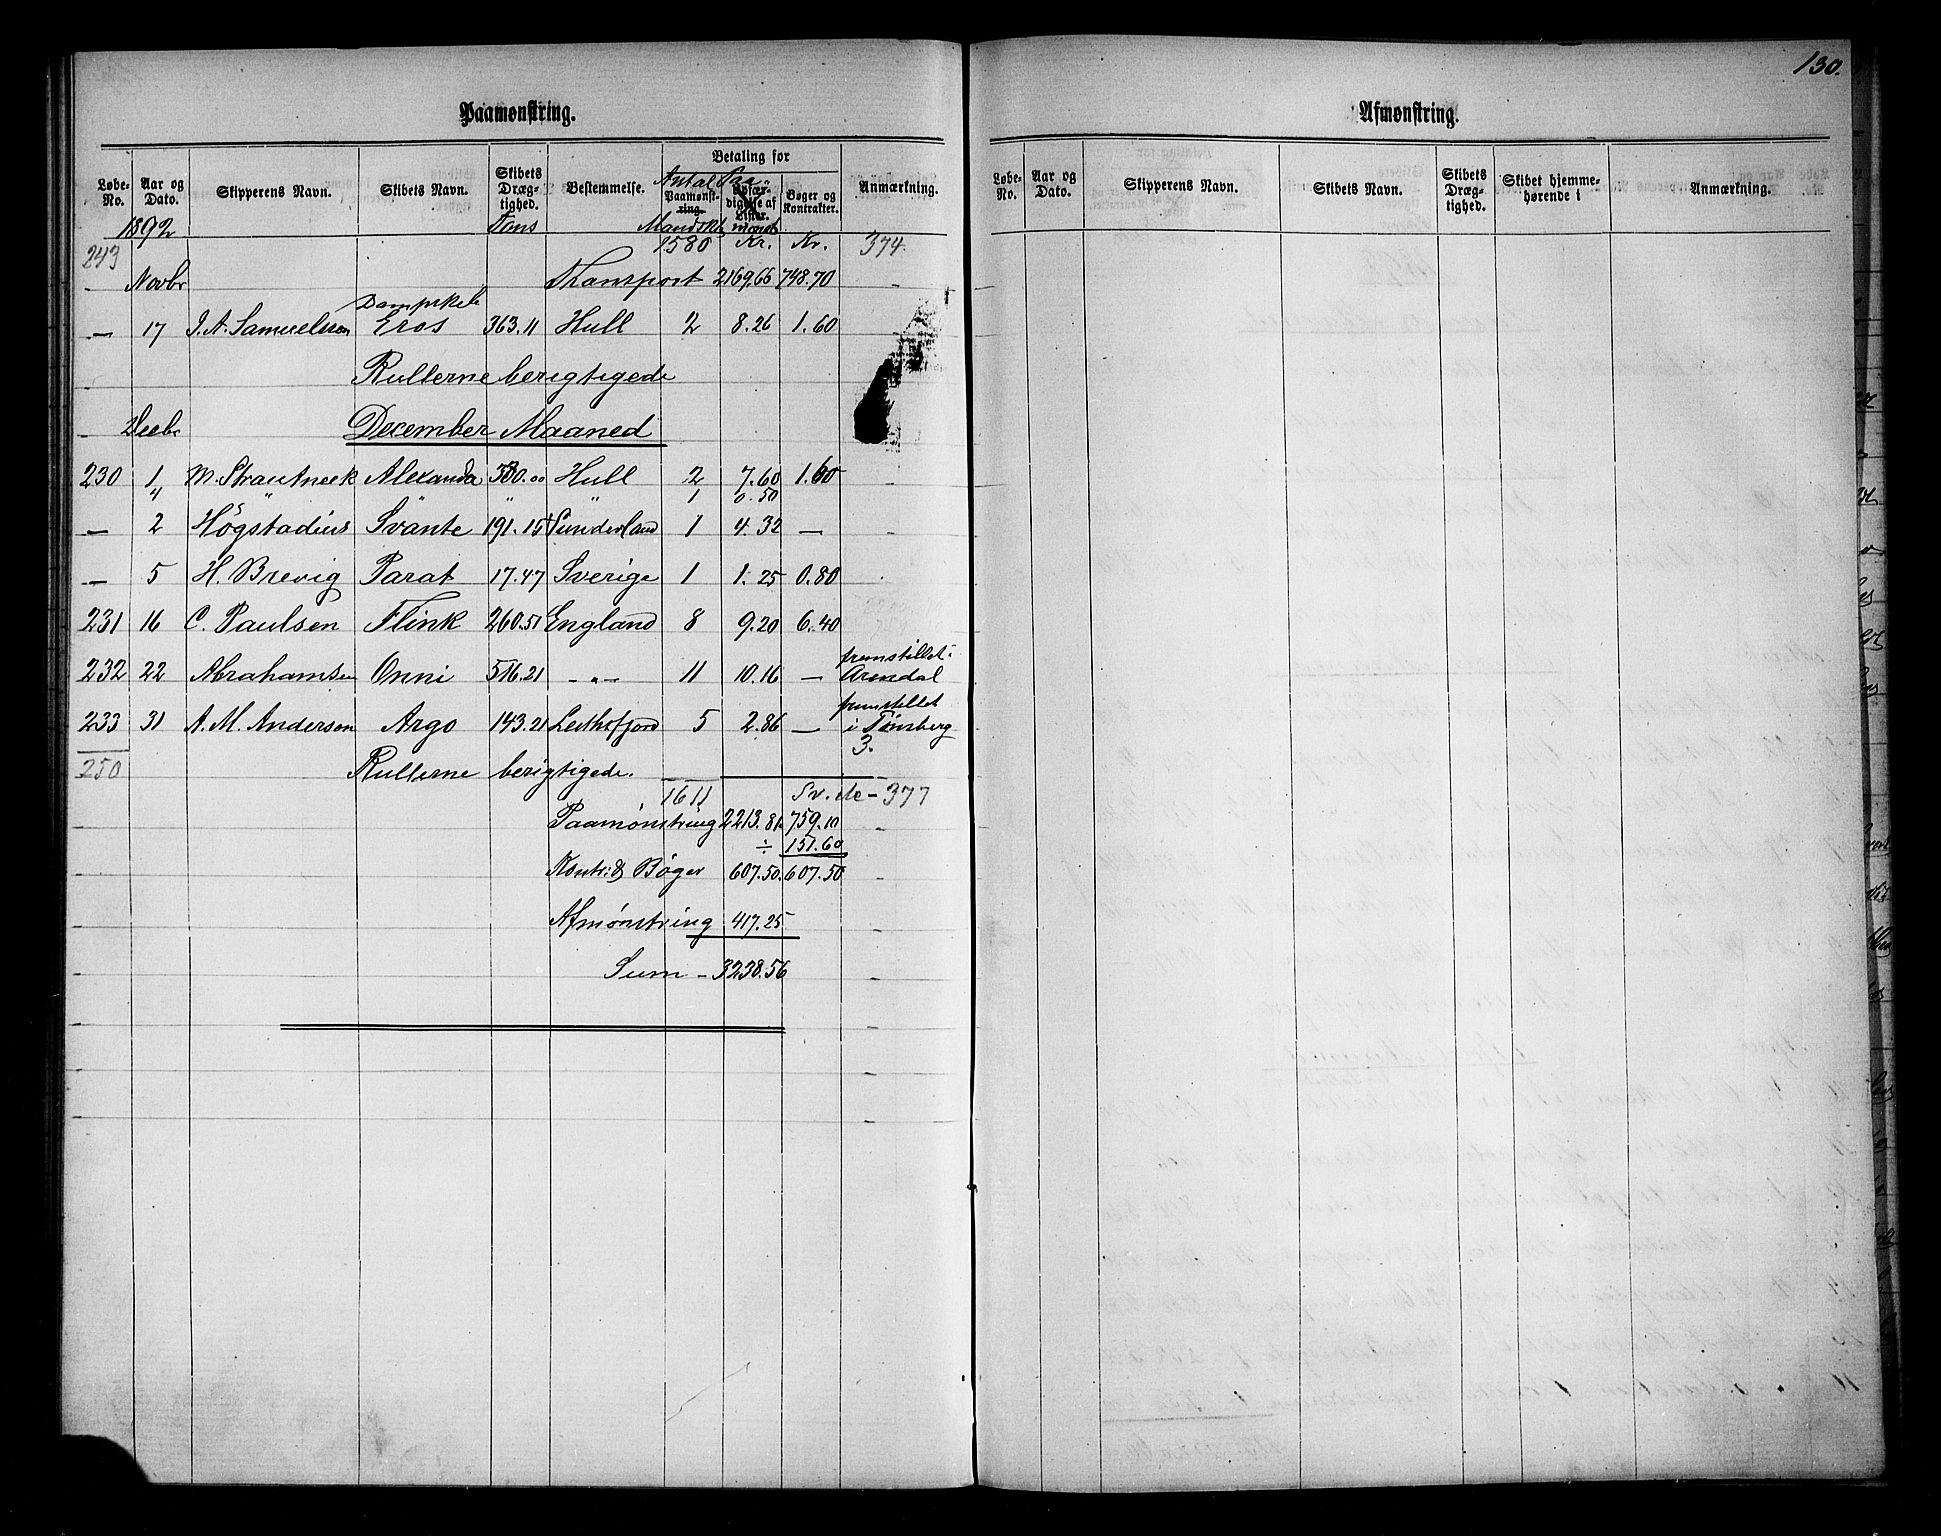 130.
Paamønstring.
Løbe-No. Aar og Dato. Skipperens Navn. Skibets Navn. Skibets Dræg-tighed. Bestemmelse. Betaling for Anmærkning.
Antal Paa-
Paamønst-ring. Udfær-digelse af Lister. Bøger og Kontrakter.
1892 Tons Mandsk. mønst.
243 1580 Kr. Kr. 374
Novbr Transport 2169.66 748.70
Dampskib
— 17 J. A. Samuelsson Eros 363.11 Hull 2 8.26 1.60
Rullerne berigtigede
Decbr December Maaned
230 1 M. Strautneek Alexanda 380.00 Hull 2 7.60 1.60
4 " " " 1 0.50
— 2 Högstadius Svante 191.15 Sunderland 1 4.32 —
— 5 H. Brevig Parat 17.47 Sverige 1 1.25 0.80
231 16 C. Paulsen Flink 260.51 England 8 9.20 6.40
232 22 Abrahamsen Onni 516.21 -"- 11 10.16 — fremstillet i Arendal
233 31 A. M. Andersen Argo 143.21 Leithsfjord 5 2.86 — fremstillet i Tønsberg
3.
250 Rullerne berigtigede.
1611 377
Paamønstring 2213.81 759.10
÷ 151.60
Kontr: & Bøger 607.50. 607.50
Afmønstring 417.25
Sum - 3238.56
Afmønstring.
Løbe-No. Aar og Dato. Skipperens Navn. Skibets Navn. Skibets Dræg-tighed. Skibet hjemme-hørende i Anmærkning.